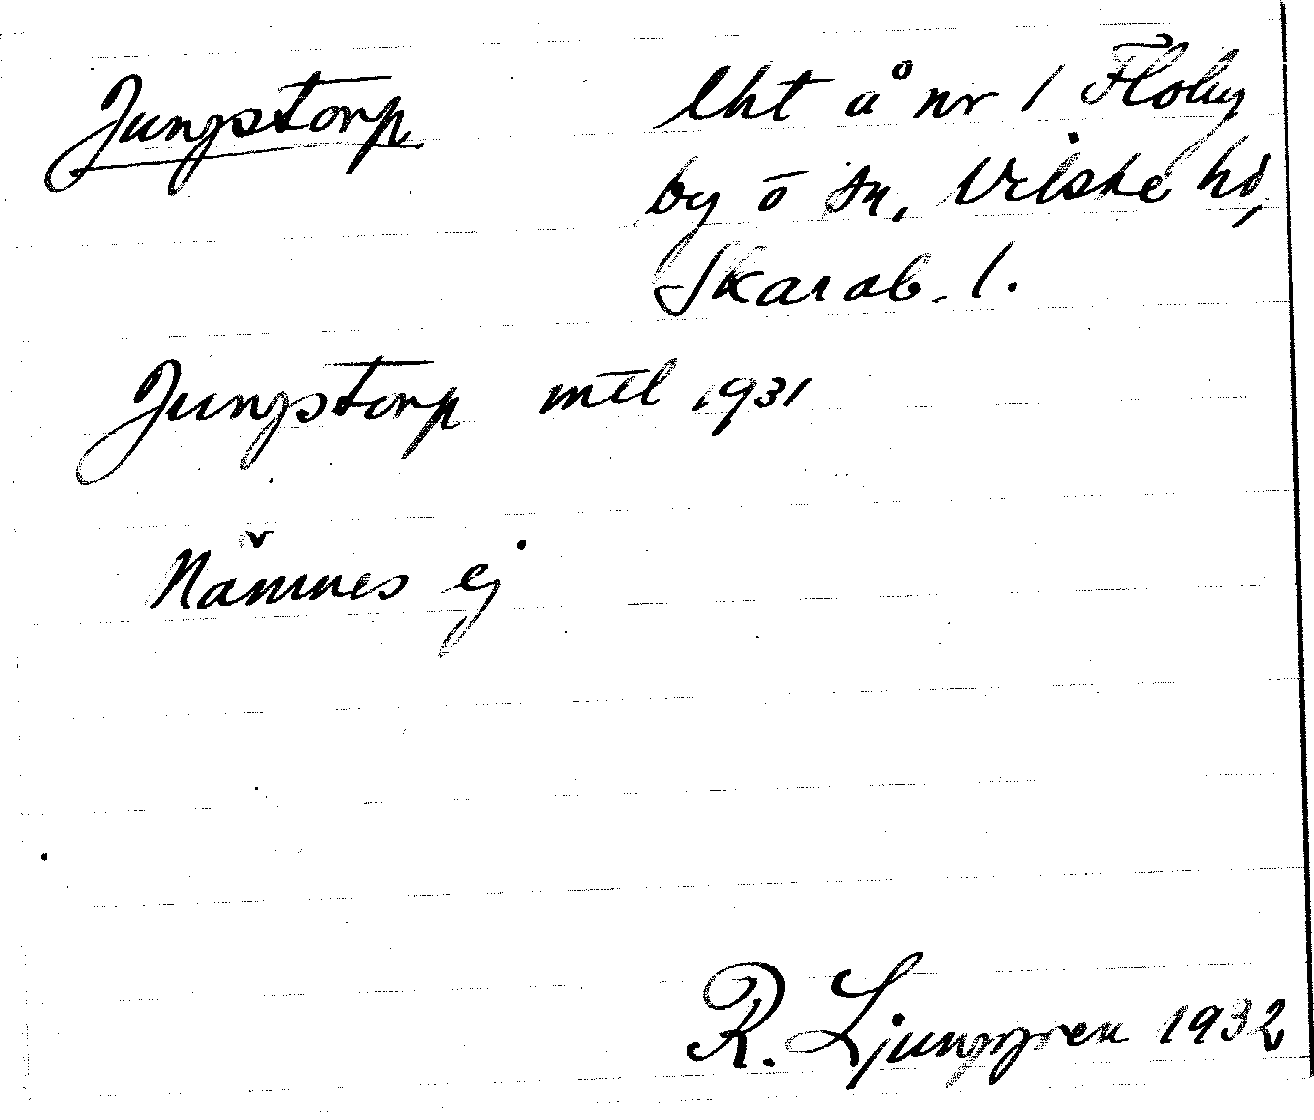 Jungstorp
lht å nr 1 Floby
by o sn, Vilske hd,
Skarab. l.
Jungstorp mtl 1931
Nämnes ej
R. Ljunggren 1932